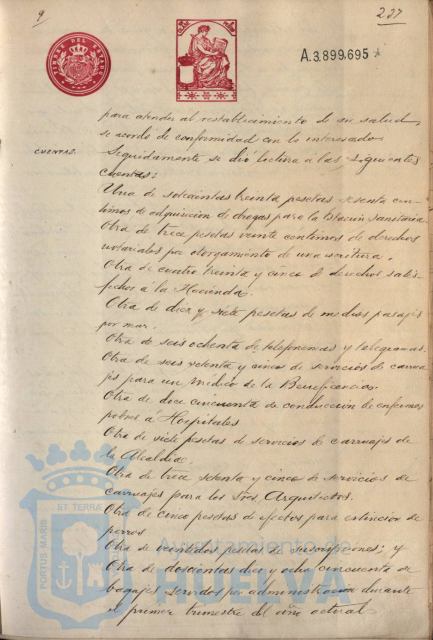 9
237
TIMBRE DEL ESTADO
A.3.899.695
para atender al restablecimiento de su salud,
se acordó de conformidad con lo interesado
CUENTAS.
Seguidamente se dió lectura a las siguientes
cuentas:
Una de setecientas treinta pesetas sesenta cen-
timos de adquisición de drogas para la Estación sanitaria
Otra de trece pesetas veinte céntimos de derechos
notariales por otorgamiento de una escritura.
Otra de cuatro treinta y cinco de derechos satis-
fechos á la Hacienda.
Otra de diez y siete pesetas de medios pasajes
por mar.
Otra de seis ochenta de telefonemas y telegramas.
Otra de seis setenta y cinco de servicios de carrua-
jes para un Médico de la Beneficencia.
Otra de doce cincuenta de conducción de enfermos
pobres á Hospitales
Otra de siete pesetas de servicios de carruajes de
la Alcaldía.
Otra de trece setenta y cinco de servicios de
carruajes para los Sres. Arquitectos.
Otra de cinco pesetas de efectos para extinción de
perros.
Otra de veintidos pesetas de suscripciones; y
Otra de doscientas diez y ocho cincuenta de
bagajes servidos por administración durante
el primer trimestre del año actual.
PORTUS MARIS
ET TERRA
Ayuntamiento de
HUELVA